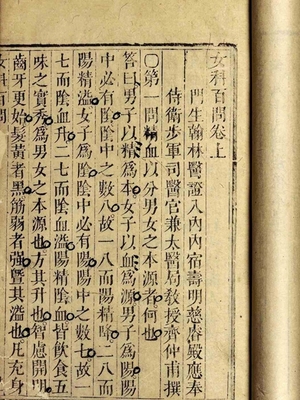 女科百問卷上
門生翰林醫證入內內宿壽明慈睿殿應奉
侍衛步軍司醫官兼太醫局敎授齊仲甫撰
〇第一問精血以分男女之本源者何也
答曰男子以精爲本女子以血爲源男子爲陽陽
中必有陰陰中之數八故一八而陽精升二八而
陽精溢女子爲陰陰中必有陽陽中之數七故一
七而陰血升二七而陰血溢陽精陰血皆飲食五
味之實秀爲男女之本源也方其升也智慮開明
齒牙更始髮黃者黑筋弱者强曁其溢也凡充身
女科百問